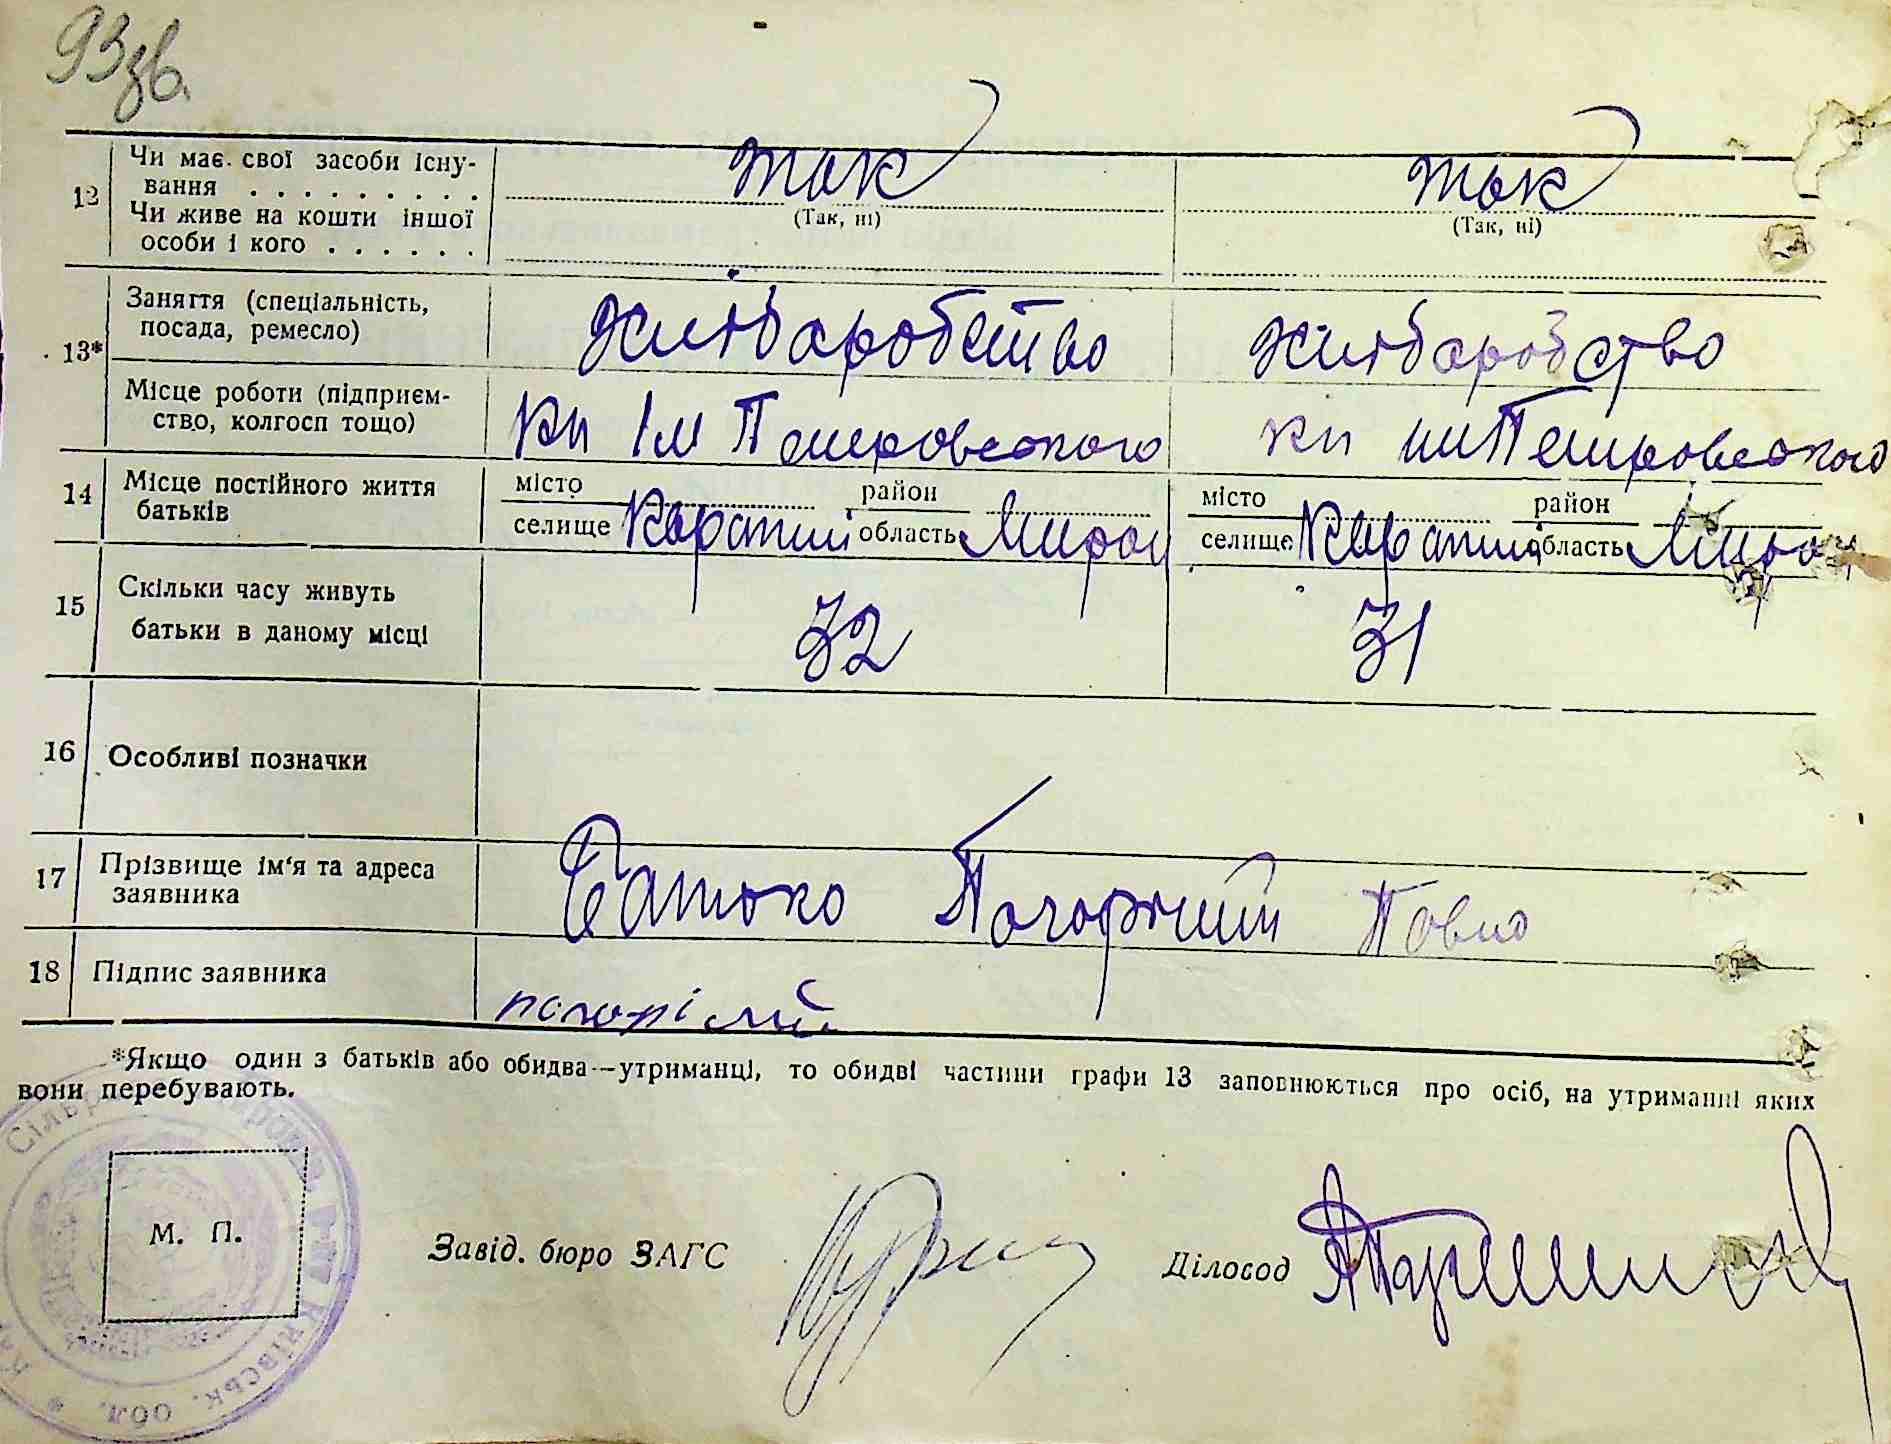 93зв.
12
Чи має свої засоби існу-
вання . . . . . . . . .
так
так
(Так, ні)
(Так, ні)
Чи живе на кошти іншої
особи і кого . . . . . .
13*
Заняття (спеціальність,
посада, ремесло)
Хліборобство
Хліборобство
Місце роботи (підприєм-
ство, колгосп тощо)
Кп Ім Петровського
Кп Петровського
14
Місце постійного життя
батьків
місто
селище
район
область
Мирон
місто
селище
район
область
Мирон
15
Скільки часу живуть
батьки в даному місці
32
31
16
Особливі позначки
17
Прізвище ім'я та адреса
заявника
Батько Погорілий Павло
18
Підпис заявника
погорілий
*Якщо один з батьків або обидва—утриманці, то обидві частини графи 13 заповнюються про осіб, на утриманні яких
вони перебувають.
М. П.
Завід. бюро ЗАГС
Діловод
Київськ. обл.